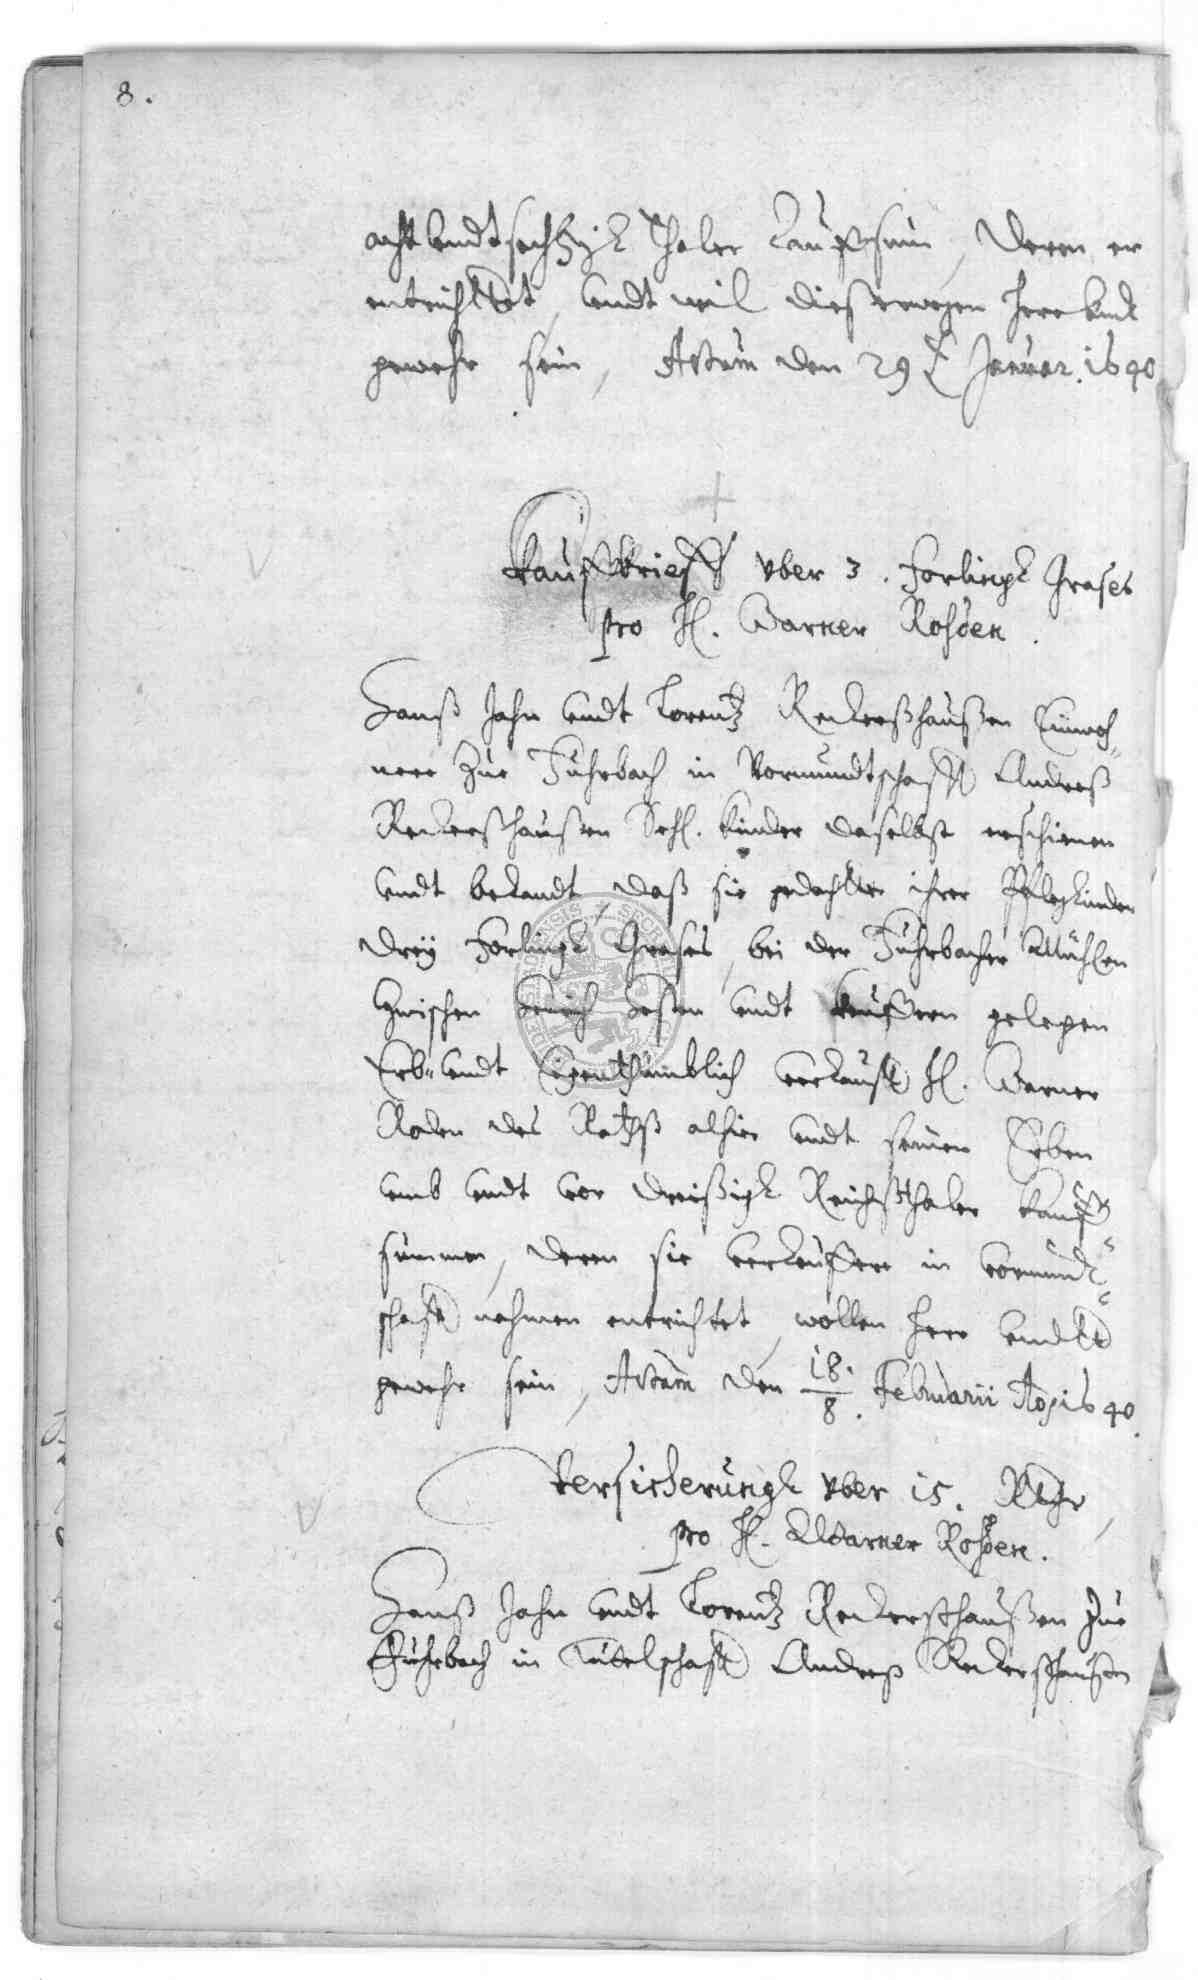 8.
acht undt sechtzigk Thaler Kauffsum, deren er
entrichttet, undt wil dieserwegen Herr undt
gewehr sein, Actum den 29 t Januar. 1640
Kauffbrieff vber 3. Forlingk Grases
pro H. Warner Rohden.
Hanß Jahn undt Lorentz Reckerßhaußen Einwoh„
nere Zue Fuhrbach in Vormundtschafft Andreß
Reckerßhaußen Sehl. Kinder daselbst erschienen
undt bekandt daß sie gedachtter ihrer Pflegkinder
drey Forlingk Grases, bei der Fuhrbacher Mühlen
Zwischen undt Keuffern gelegen
Erb- undt Eigenthümblich verkaufft H. Warner
Roden des Rathß alhier undt seinen Erben
umb undt vor dreißigk Reichßthaler Kauff
summen, deren sie verkeuffere in vormundt„
schafft nahmen entrichtet, wollen Herr undtt
gewehr sein, Actum den 18./8. Februarii Ao 1640.
Versicherungk vber 15. Rthlr,
pro H. Warner Rohden.
Hanß Jahn undt Lorentz Reckerßhaußen Zue
Fuhrbach in Tutelschafft Andreß Reckerßhaußen